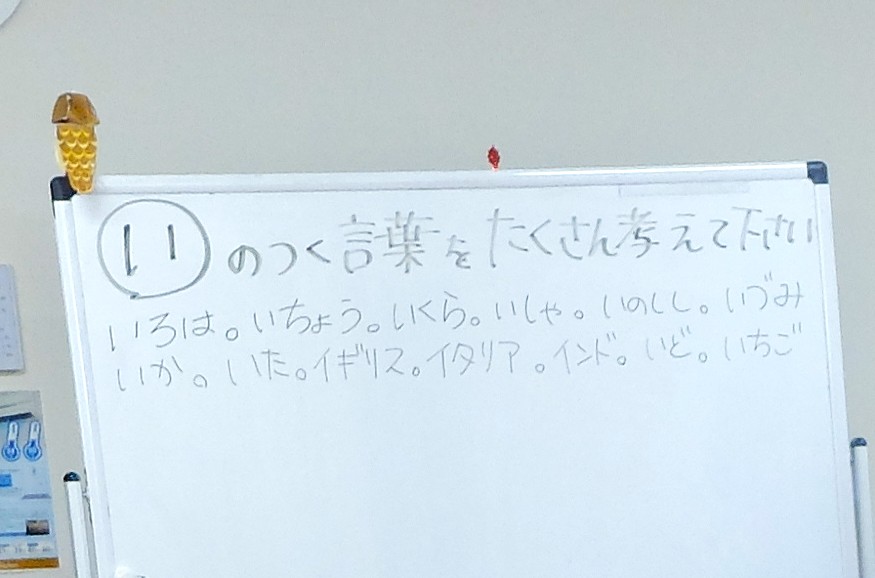 いのつく言葉をたくさん考えて下さい
いろは。いちょう。いくら。いしゃ。いのしし。いづみ
いか。いた。イギリス。イタリア。インド。いど。いちご